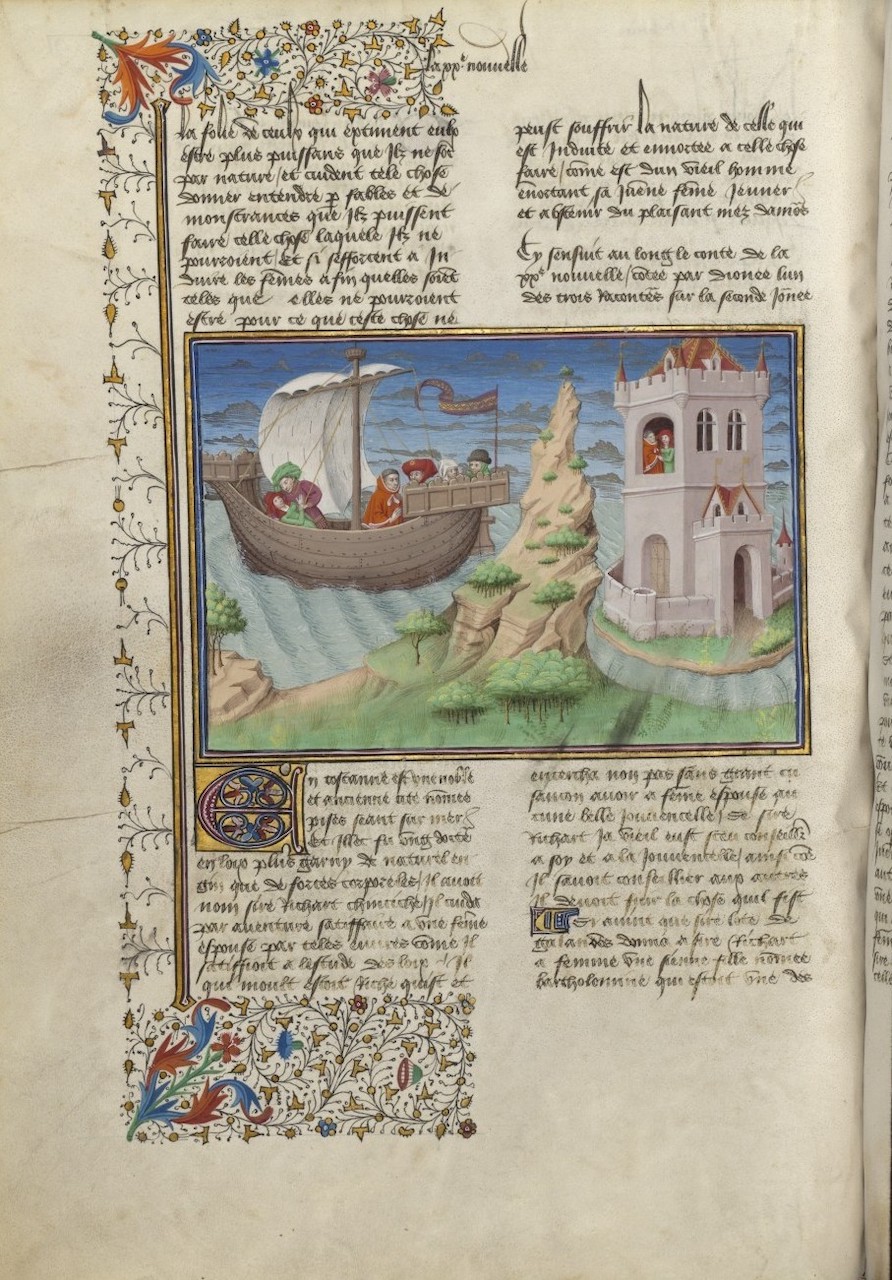 la xxe nouvelle
la folie de ceulx qui extiment eulx
estre plus puissans que Ilz ne sot
par nature / et cuident tele chose
donner entendre p fables et de
monstrances que Ilz puissent
faire celle chose laquele Ilz ne
pourroient / Et si sefforcent a In
duire les femes a fin quelles soiet
teles que elles ne pourroient
estre pour ce que ceste chose ne
peust souffrir la nature de celle qui
est Induite et ennortee a celle chose
faire / come est dun vieil homme
enortant sa Juene feme Jeuner
et abstenir du plaisant mez damos
Cy sensuit au long le conte de la
xxe nouvelle / cotee par dionee lun
des trois Racontes sur la seconde Jonee
En toscanne est une noble
et ancienne cite nomee
pises seant sur mer
Et Illec fu ung docte
en loix plus garny de naturel en
gin que de forces corporeles / Il avoit
nom sire Richart chinche / Il cuida
par aventure satiffaire a une feme
espouse par teles euvres come Il
satiffioit a lestude des loix / Il
qui moult estoit Riche quist et
encercha non pas sans grant
avoir a feme espouse au
cune belle Jouvencelle / Se sire
Richart Ja vieil eust sceu conseillr
a soy et a la Jouvencele / ainsi coe
Il savoit conseillier aux autres
Il devoit fuir la chose quil fist
Il avint que sire lote de
galandes donna a sire Richart
a femme une sienne fille nomee
bartholomine qui estoit une des